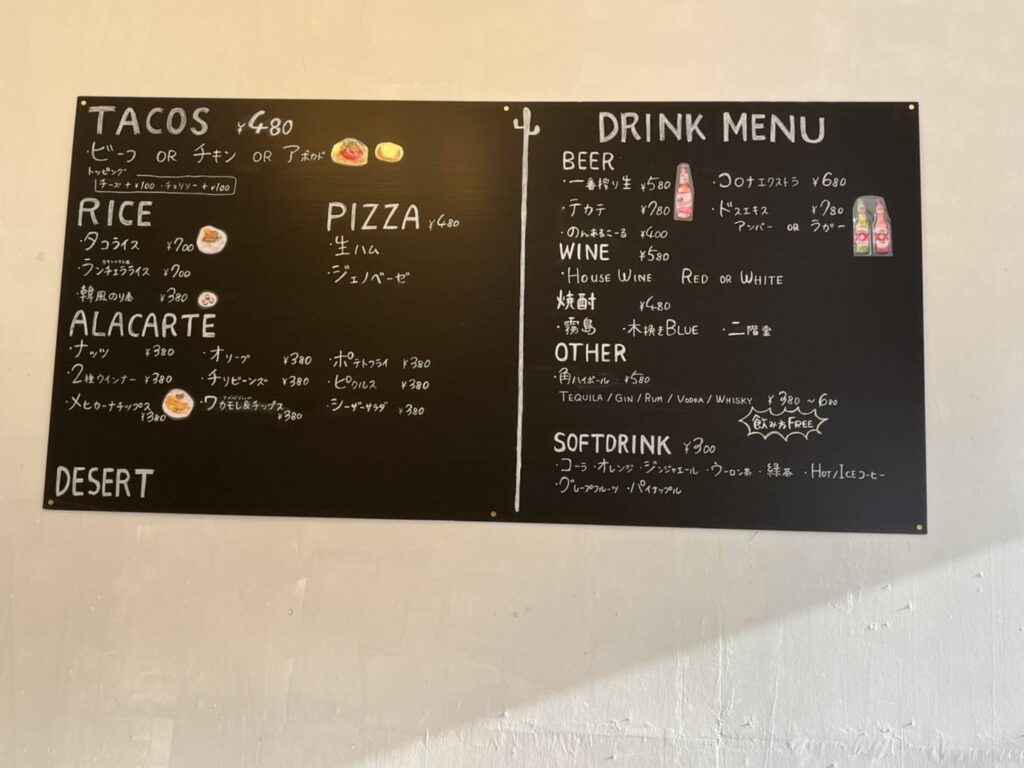 TACOS ¥480
・ビーフ OR チキン OR アボカド
トッピング
チーズ+¥100 ・チョリソー+¥100
RICE
・タコライス ¥700
・ランチェラライス ¥700
・韓風のり巻 ¥380
PIZZA ¥480
・生ハム
・ジェノベーゼ
ALACARTE
・ナッツ ¥380 ・オリーブ ¥380 ・ポテトフライ ¥380
・2種ウインナー ¥380 ・チリビーンズ ¥380 ・ピクルス ¥380
・メヒカーナチップス ¥380 ・ワカモレ&チップス ¥380 ・シーザーサラダ ¥380
DESERT
DRINK MENU
BEER
・一番搾り生 ¥580 ・コロナエクストラ ¥680
・テカテ ¥780 ・ドスエキス ¥780
アンバー OR ラガー
・のんあるこーる ¥400
WINE ¥580
・HOUSE WINE RED OR WHITE
焼酎 ¥480
・霧島 ・木挽きBLUE ・二階堂
OTHER
・角ハイボール ¥580
TEQUILA / GIN / RUM / VODKA / WHISKY ¥380 ~680
飲み方FREE
SOFTDRINK ¥300
・コーラ・オレンジ・ジンジャエール・ウーロン茶・緑茶・HOT/ICEコーヒー
・グレープフルーツ・パイナップル